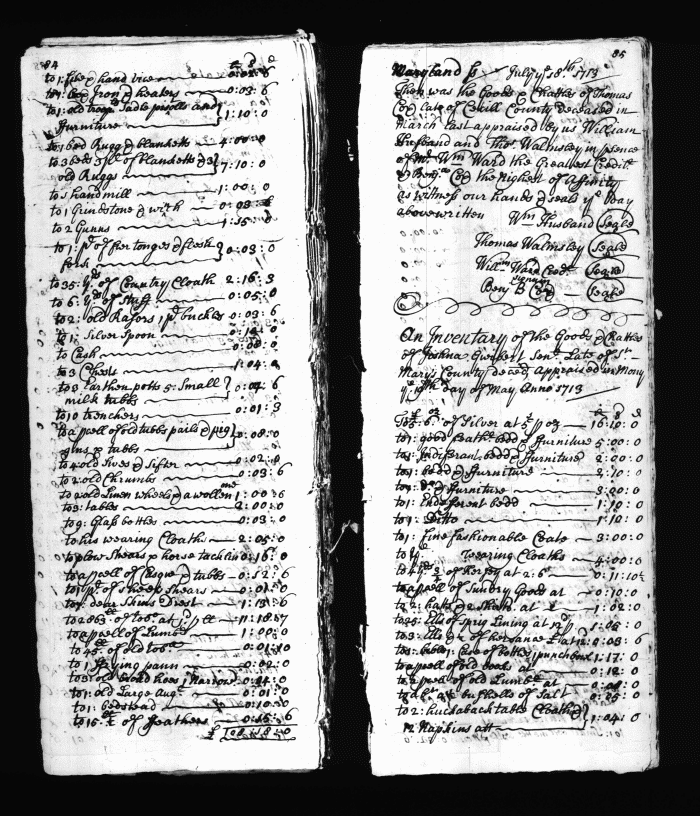 84
£ s d
to 1: file & hand vice — 0:02:6
to 1: box Iron & heaters — 0:03:6
to 1: old troop Sadle pistolls and
furniture — } 1:10:0
to 1 bed Rugg & blanketts — 4:00:0
to 3 beds 3 pr of blanketts & 3
old Ruggs — } 7:10:0
to 1 handmill — 1:00:0
to 1 Grindstone & — 0:03:
to 2 Gunns — 1:15:0
to 1: pr of fier tonges & flesh
fork — } 0:03:0
to 35: yds of Country Cloath 2:16:3
to 6: yds of Stuff — 0:05:0
to 2: old Rasors 1 pr buckles 0:03:6
to 1: Silver Spoon —
to Cash —
to 3 Chests — 1:04:
to 3 Earthen potts 5: Small
milk tubbs — } 0:04:6
to 10 trenchers — 0:01:3
to a pcell of old tubbs pails & pig
gins & tubbs — } 0:08:0
to 4 old Sives & Sifter — 0:02:0
to 2: old Chrumbs — 0:03:6
to 2 old Linen wheels & a wollen one 1:00:6
to 3: tables — 2:00:0
to 9: Glass bottles — 0:03:0
to his wearing Cloaths — 2:05:0
to plow Shears & horse tackling 0:16:0
to a pcell of Casque & tubbs — 0:52:6
to 1 pr of sheep shears — 0:01:0
to 7: dear Skins Drest — 1:13:6
to 2863 ll of tobo at 1d p ll — 11:18:7
to a pcell of Lumbr — 1:00:0
to 45: ll of old tobo —
to 1 frying pann — 0:02:0
to 3: old broad hoes: Narrow
to 1: old Large Aug — 0:01:0
to 1: bedstead — 0:10:0
to 15: ll of feathers — 0:15:6
£
85
Maryland ss — July ye 18th 1713
Then was the Goods & Chattles of Thomas
Cox late of Cecill County deceased in
March last appraised by us William
Husband and Thos. Walmsley in psence
of Mr. Wm Ward the Greatest Creditr
& Benja Cox the highest of Affinity
as witness our hands & seals ye Day
abovewritten Wm Husband (Seale)
Thomas Walmsley (Seale)
Willm Ward Credr — (Seale)
Benj B Cox — (Seale)
An Inventory of the Goods & Chattes
of Joshua Senr. Late of St.
Mary's County decd. Appraised in Mony
ye 19th day of May Anno 1713
£ s d
To oz of Silver at 5s p oz — 16:10:0
to 1: good feathr. bedd & furniture 5:00:0
to 1: Indiferant bedd & furniture 2:00:0
to 1: bedd & furniture — 2:10:0
to 1: Do & furniture — 3:00:0
to 1: Indefferent bedd — 1:10:0
to 1: Ditto — 1:10:0
to 1: Fine fashionable Coate — 3:00:0
to Wearing Cloaths — 4:00:0
to 4 yds of Kersey at 2:6 — 0:11:10½
to a pcell of Sundry Goods at — 0:10:0
to 2: hatts & 2 Shirts at — 1:02:0
to 25: Ells of sprig Lining at 12d p 1:05:0
to 3: Ells of at 0:03:6
to 1: Case of bottles, punchbowl 1:17:0
to a pcell of old books at — 0:12:0
to a pcell of old Lumbr at
to bushells of Salt
to 2: huckaback table Cloaths &
12 Napkins att — } 1:04:0